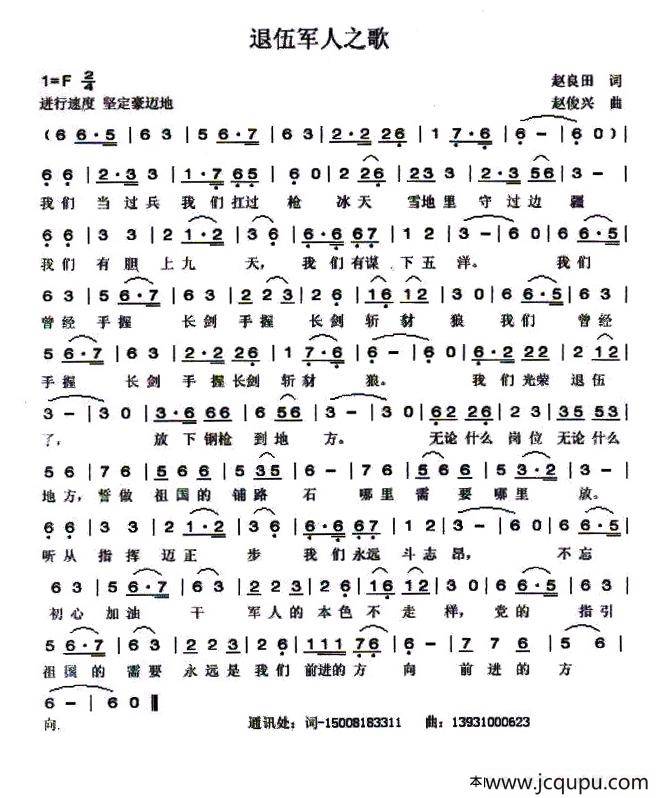 退伍军人之歌
1=F 2/4
赵良田 词
进行速度 坚定豪迈地
赵俊兴 曲
(6 6·5 | 6 3 | 5 6·7 | 6 3 | 2·2 26 | 1 7·6 | 6 - | 6 0) |
6 6 | 2·3 33 | 1·7 65 | 6 0 | 2 26 | 23 3 | 2·3 56 | 3 - |
我们 当过兵 我们扛过 枪 冰天 雪地里 守过边 疆
6 6 | 3 3 | 2 1·2 | 3 6 | 6·6 67 | 1 2 | 3 - | 6 0 | 6 6·5 |
我们 有胆 上九 天, 我们有谋 下五 洋。 我们
6 3 | 5 6·7 | 6 3 | 2 2 3 | 2 6 | 16 12 | 3 0 | 6 6·5 | 6 3 |
曾经 手握 长剑 手握 长剑 斩豺 狼 我们 曾经
5 6·7 | 6 3 | 2·2 26 | 1 7·6 | 6 - | 6 0 | 6·2 22 | 2 12 |
手握 长剑 手握长剑 斩豺 狼。 我们光荣 退伍
3 - | 3 0 | 3·6 66 | 6 56 | 3 - | 3 0 | 62 26 | 2 3 | 35 53 |
了, 放下钢枪 到地 方。 无论什么 岗位 无论什么
5 6 | 7 6 | 6·2 2 6 | 5 35 | 6 0 | 1 7 6 | 5 6 6 | 5 3·2 | 3 0 |
地方, 誓做 祖国的 铺路 石 哪里 需要 哪里 放。
6 6 | 3 3 | 2 1·2 | 3 6 | 6·6 67 | 1 2 3 | 3 - | 3 0 | 6 6·5 |
听从 指挥 迈正 步 我们永远 斗志 昂, 不忘
6 3 | 5 6·7 | 6 3 | 2 2 3 | 2 6 | 16 12 | 3 0 | 6 6·5 | 6 3 |
初心 加油 干 军人的 本色 不走 样, 党的 指引
5 6·7 | 6 3 | 2 2 3 | 2 6 | 111 76 | 6 - | 6 3 | 5 6 | 6 - |
祖国 的 需要 永远是 我们 前进的方 向 前进 的方
6 - | 6 0 ‖
向.
通讯处: 词-15008183311 曲: 13931000623
www.jcqupu.com